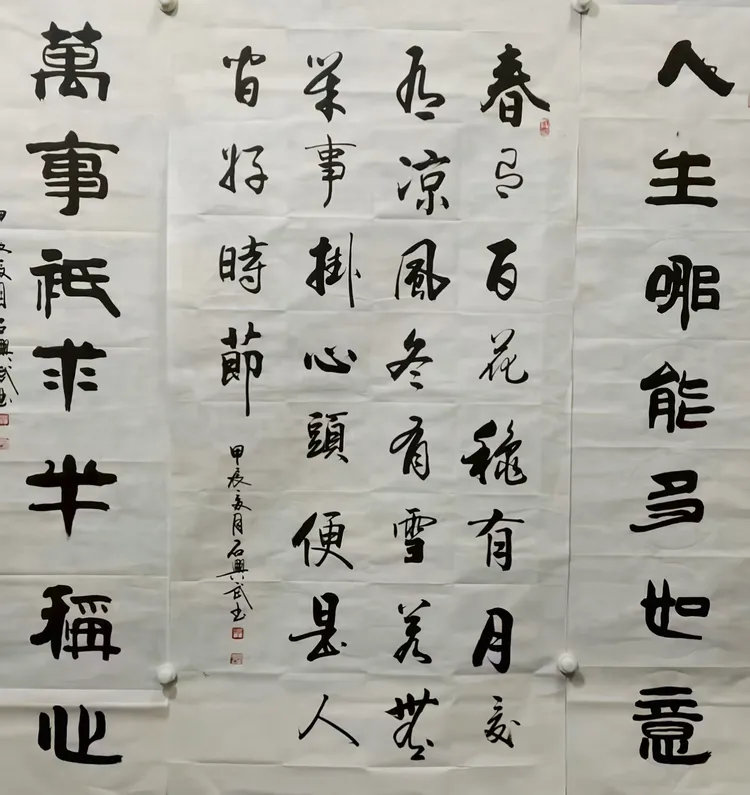 人生哪能多如意
春有百花穐有月夏
有凉風冬有雪若無
閑事掛心頭便是人
間好時節
甲辰夏月石興武书
萬事祗求半稱心
甲辰夏月石興武书